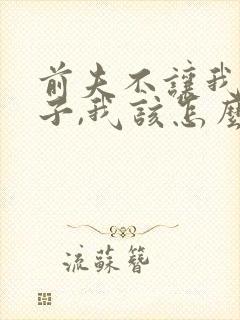 前夫不讓我
子,我該怎麼
流蘇簪